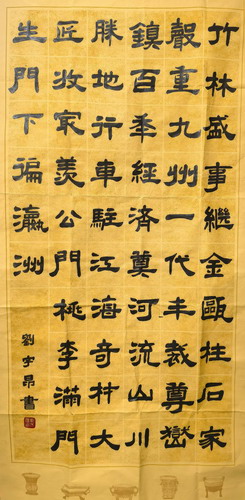 竹林盛事繼金甌柱石家
聲重九州一代丰裁尊嶽
鎮百年經濟奠河流山川
勝地行車駐江海奇材大
匠收家羨公門桃李滿門
生門下徧瀛洲
劉宇昂書